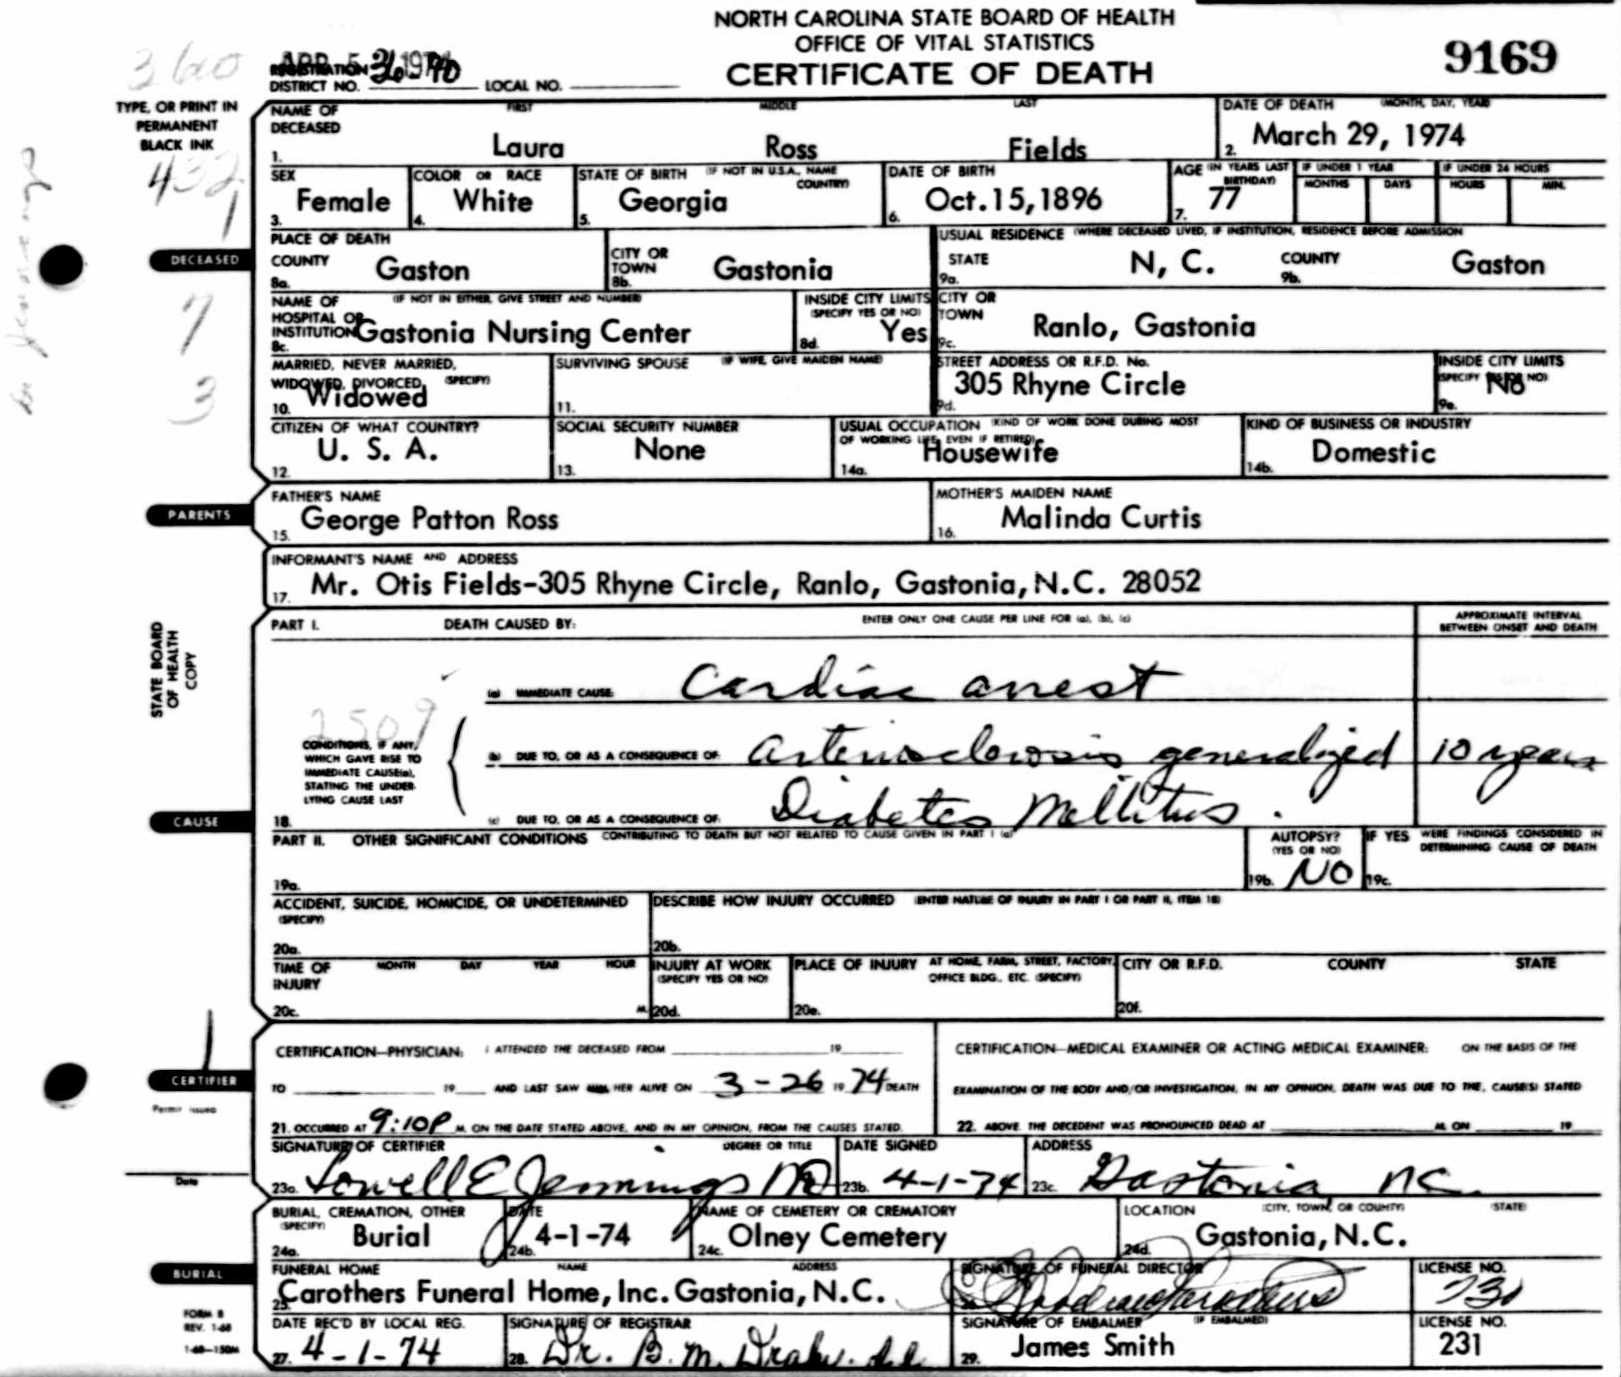 NORTH CAROLINA STATE BOARD OF HEALTH
OFFICE OF VITAL STATISTICS
CERTIFICATE OF DEATH
9169
360
APR 5 1974
REGISTRATION DISTRICT NO. LOCAL NO.
TYPE, OR PRINT IN PERMANENT BLACK INK
432
1
7
3
DECEASED
NAME OF DECEASED FIRST MIDDLE LAST
1. Laura Ross Fields
DATE OF DEATH (MONTH, DAY, YEAR)
2. March 29, 1974
SEX
3. Female
COLOR OR RACE
4. White
STATE OF BIRTH (IF NOT IN U.S.A., NAME COUNTRY)
5. Georgia
DATE OF BIRTH
6. Oct.15,1896
AGE (IN YEARS LAST BIRTHDAY)
7. 77
IF UNDER 1 YEAR
MONTHS DAYS
IF UNDER 24 HOURS
HOURS MIN.
PLACE OF DEATH
COUNTY
8a. Gaston
CITY OR TOWN
8b. Gastonia
USUAL RESIDENCE (WHERE DECEASED LIVED, IF INSTITUTION, RESIDENCE BEFORE ADMISSION
STATE
9a. N, C.
COUNTY
9b. Gaston
NAME OF HOSPITAL OR INSTITUTION (IF NOT IN EITHER, GIVE STREET AND NUMBER)
8c. Gastonia Nursing Center
INSIDE CITY LIMITS (SPECIFY YES OR NO)
8d. Yes
CITY OR TOWN
9c. Ranlo, Gastonia
MARRIED, NEVER MARRIED, WIDOWED, DIVORCED, (SPECIFY)
10. Widowed
SURVIVING SPOUSE (IF WIFE, GIVE MAIDEN NAME)
11.
STREET ADDRESS OR R.F.D. No.
9d. 305 Rhyne Circle
INSIDE CITY LIMITS (SPECIFY YES OR NO)
9e. No
CITIZEN OF WHAT COUNTRY?
12. U. S. A.
SOCIAL SECURITY NUMBER
13. None
USUAL OCCUPATION (KIND OF WORK DONE DURING MOST OF WORKING LIFE, EVEN IF RETIRED)
14a. Housewife
KIND OF BUSINESS OR INDUSTRY
14b. Domestic
PARENTS
FATHER'S NAME
15. George Patton Ross
MOTHER'S MAIDEN NAME
16. Malinda Curtis
INFORMANT'S NAME AND ADDRESS
17. Mr. Otis Fields-305 Rhyne Circle, Ranlo, Gastonia, N.C. 28052
STATE BOARD OF HEALTH COPY
PART I. DEATH CAUSED BY: ENTER ONLY ONE CAUSE PER LINE FOR (a), (b), (c)
APPROXIMATE INTERVAL BETWEEN ONSET AND DEATH
(a) IMMEDIATE CAUSE: Cardiac arrest
2509
CONDITIONS, IF ANY, WHICH GAVE RISE TO IMMEDIATE CAUSE(a), STATING THE UNDERLYING CAUSE LAST
(b) DUE TO, OR AS A CONSEQUENCE OF: Arteriosclerosis generalized 10 years
CAUSE
18. (c) DUE TO, OR AS A CONSEQUENCE OF: Diabetes Mellitus.
PART II. OTHER SIGNIFICANT CONDITIONS CONTRIBUTING TO DEATH BUT NOT RELATED TO CAUSE GIVEN IN PART I (a)
19a.
AUTOPSY? (YES OR NO)
19b. NO
IF YES WERE FINDINGS CONSIDERED IN DETERMINING CAUSE OF DEATH
19c.
ACCIDENT, SUICIDE, HOMICIDE, OR UNDETERMINED (SPECIFY)
20a.
DESCRIBE HOW INJURY OCCURRED (ENTER NATURE OF INJURY IN PART I OR PART II, ITEM 18)
20b.
TIME OF INJURY MONTH DAY YEAR HOUR
20c. M.
INJURY AT WORK (SPECIFY YES OR NO)
20d.
PLACE OF INJURY AT HOME, FARM, STREET, FACTORY, OFFICE BLDG., ETC. (SPECIFY)
20e.
CITY OR R.F.D. COUNTY STATE
20f.
1
CERTIFIER
Permit issued
Date
CERTIFICATION—PHYSICIAN: I ATTENDED THE DECEASED FROM 19
TO 19 AND LAST SAW HIM, HER ALIVE ON 3-26 19 74 DEATH
21. OCCURRED AT 9:10P M. ON THE DATE STATED ABOVE, AND IN MY OPINION, FROM THE CAUSES STATED.
CERTIFICATION—MEDICAL EXAMINER OR ACTING MEDICAL EXAMINER: ON THE BASIS OF THE
EXAMINATION OF THE BODY AND/OR INVESTIGATION, IN MY OPINION, DEATH WAS DUE TO THE, CAUSE(S) STATED
22. ABOVE. THE DECEDENT WAS PRONOUNCED DEAD AT M. ON 19
SIGNATURE OF CERTIFIER DEGREE OR TITLE
23a. Lowell E Jennings MD
DATE SIGNED
23b. 4-1-74
ADDRESS
23c. Gastonia NC.
BURIAL
BURIAL, CREMATION, OTHER (SPECIFY)
24a. Burial
DATE
24b. 4-1-74
NAME OF CEMETERY OR CREMATORY
24c. Olney Cemetery
LOCATION (CITY, TOWN, OR COUNTY) (STATE)
24d. Gastonia, N.C.
FUNERAL HOME NAME ADDRESS
25. Carothers Funeral Home, Inc. Gastonia, N.C.
SIGNATURE OF FUNERAL DIRECTOR
LICENSE NO.
FORM 8
REV. 1-68
1-68—150M
DATE REC'D BY LOCAL REG.
27. 4-1-74
SIGNATURE OF REGISTRAR
28. Dr. B. M. Drake
SIGNATURE OF EMBALMER (IF EMBALMED)
29. James Smith
LICENSE NO.
231